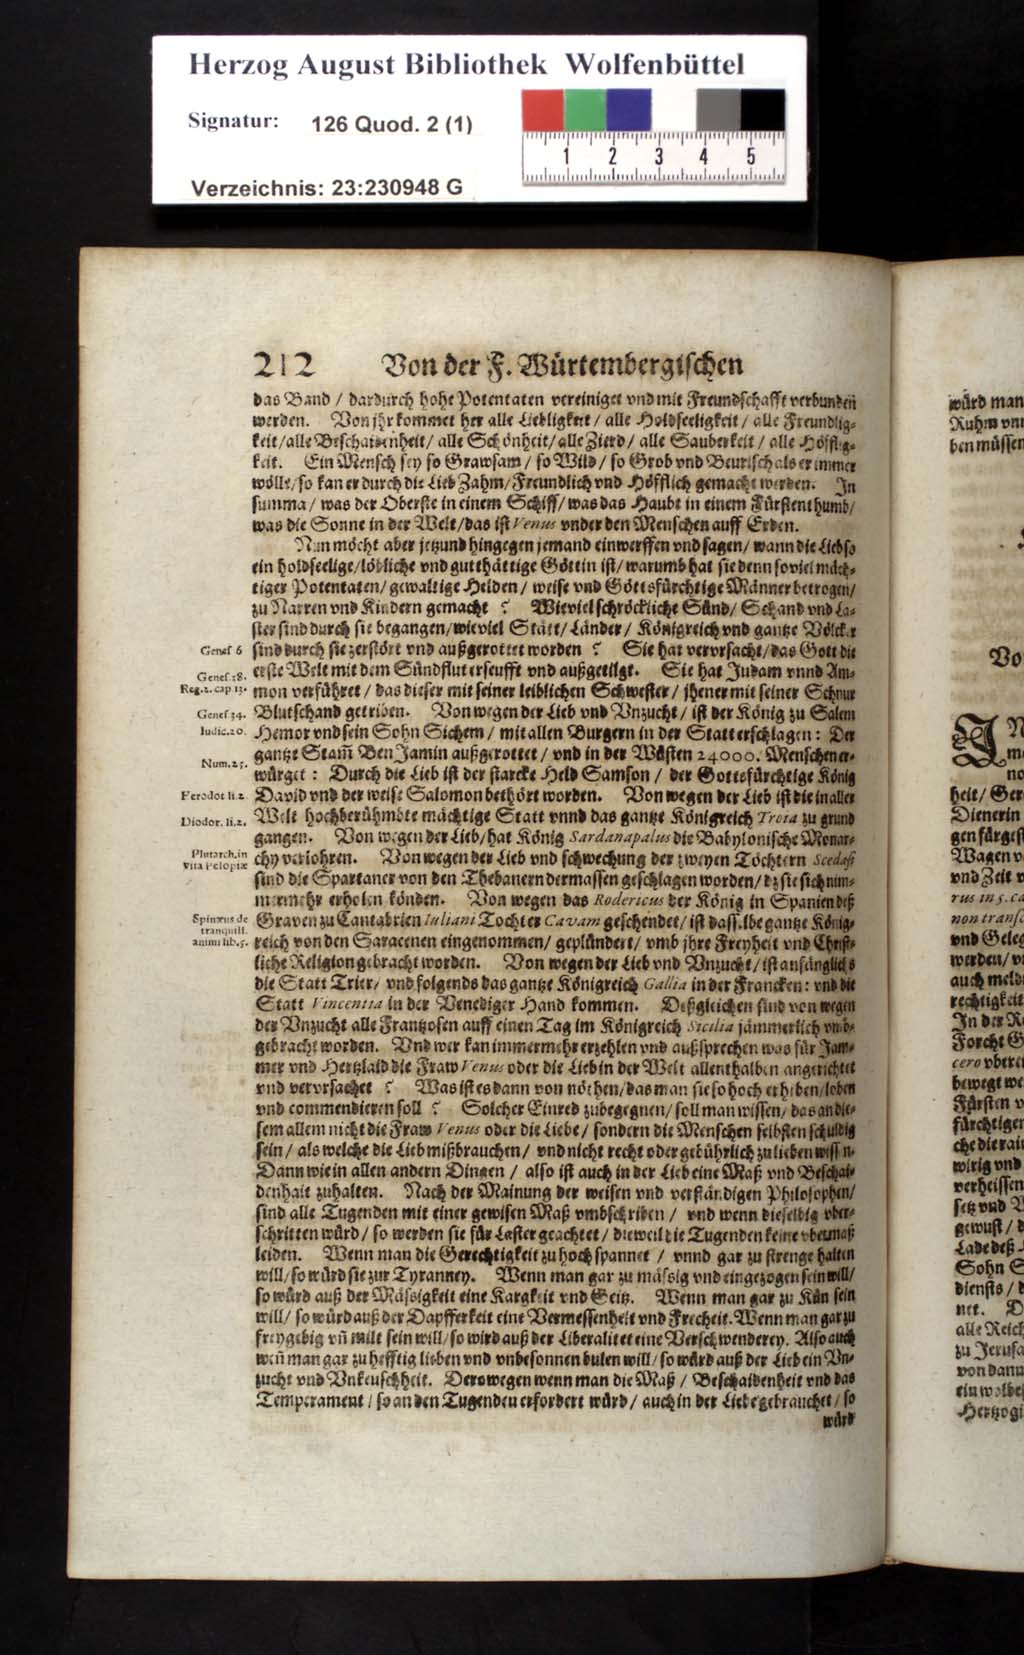 Herzog August Bibliothek Wolfenbüttel
Signatur: 126 Quod. 2 (1)
1 2 3 4 5
Verzeichnis: 23:230948 G
212 Von der F. Würtembergischen
das Band / dardurch hohe Potentaten vereiniget vnd mit Freundschafft verbunden
werden. Von jhr kommet her alle Liebligkeit / alle Holdseeligkeit / alle Freundlig-
keit/alle Beschaidenheit/ alle Schönheit/alle Zierd/ alle Sauberkeit / alle Höfflig-
keit. Ein Mensch sey so Grawsam/ so Wild/ so Grob vnd Beurisch als er immer
wölle/so kan er durch die Lieb Zahm/Freundlich vnd Höfflich gemacht werden. In
summa/ was der Oberste in einem Schiff/was das Haubt in einem Fürstenthumb/
was die Sonne in der Welt/das ist Venus vnder den Menschen auff Erden.
Nun möcht aber jetzund hingegen jemand einwerffen vnd sagen/ wann die Lieb so
ein holdseelige/löbliche vnd gutthättige Göttin ist/warumb hat sie denn soviel mäch-
tiger Potentaten/gewaltige Helden/ weise vnd Gottsfürchtige Männer betrogen/
zu Narren vnd Kindern gemacht? Wieviel schröckliche Sünd/ Schand vnd La-
ster sind durch sie begangen/wieviel Stätt/Länder/ Königreich vnd gantze Völcker
Genes 6 sind durch sie zerstört vnd außgerottet worden? Sie hat vervrsacht/das Gott die
Genes. 38. erste Welt mit dem Sündflut erseufft vnd außgetilgt. Sie hat Judam vnnd Am-
Reg. 2. cap 13. mon verführet/ das dieser mit seiner leiblichen Schwester/ jhener mit seiner Schnur
Genes 34. Blutschand getriben. Von wegen der Lieb vnd Vnzucht/ ist der König zu Salem
Iudic. 20. Hemor vnd sein Sohn Sichem/ mit allen Burgern in der Statt erschlagen: Der
gantze Stam̃ Ben Jamin außgerottet/ vnd in der Wüsten 24000. Menschen er-
Num. 25. würget: Durch die Lieb ist der starcke Held Samson/ der Gottsfürchtige König
Ferodot li. 2. David vnd der weise Salomon bethört worden. Von wegen der Lieb ist die in aller
Diodor. li. 2. Welt hochberühmbte mächtige Statt vnnd das gantze Königreich Troia zu grund
gangen. Von wegen der Lieb/hat König Sardanapalus die Babylonische Monar-
Plutarch. in chy verlohren. Von wegen der Lieb vnd schwechung der zweyen Töchtern Scedasi
vita Pelopiæ sind die Spartaner von den Thebanern dermassen geschlagen worden/dz sie sich nim-
mermehr erholen könden. Von wegen das Rodericus der König in Spanien deß
Spinæus de Graven zu Cantabrien Iuliani Tochter Cavam geschendet/ist dasselbe gantze König-
tranquill.
animi lib. 5. reich von den Saracenen eingenommen/ geplündert/ vmb jhre Freyheit vnd Christ-
liche Religion gebracht worden. Von wegen der Lieb vnd Vnzucht/ist anfänglichs
die Statt Trier/ vnd folgends das gantze Königreich Gallia in der Francken: vnd die
Statt Vincentia in der Venediger Hand kommen. Deßgleichen sind von wegen
der Vnzucht alle Frantzosen auff einen Tag im Königreich Sicilia jämmerlich vmb-
gebracht worden. Vnd wer kan immermehr erzehlen vnd außsprechen was für Jam-
mer vnd Hertzlaid die Fraw Venus oder die Lieb in der Welt allenthalben angerichtet
vnd vervrsachet? Was ist es dann von nöthen/das man sie so hoch erheben/loben
vnd commendieren soll? Solcher Einred zubegegnen/soll man wissen/das an die-
sem allem nicht die Fraw Venus oder die Liebe/ sondern die Menschen selbsten schuldig
sein/als welche die Lieb mißbrauchen/ vnd nicht recht oder gebührlich zulieben wissen.
Dann wie in allen andern Dingen/ also ist auch in der Lieb eine Maß vnd Beschai-
denhait zuhalten. Nach der Mainung der weisen vnd verständigen Philosophen/
sind alle Tugenden mit einer gewisen Maß vmbschriben/ vnd wenn dieselbig vber-
schritten würd/ so werden sie für Laster geachtet/ dieweil die Tugenden keine vbermaß
leiden. Wenn man die Gerechtigkeit zu hoch spannet/ vnnd gar zu strenge halten
will/so würd sie zur Tyranney. Wenn man gar zu mässig vnd eingezogen sein will/
so würd auß der Mässigkeit eine Kargkeit vnd Geitz. Wenn man gar zu Kün sein
will/ so würd auß der Dapfferkeit eine Vermessenheit vnd Frecheit. Wenn man gar zu
freygebig vñ milt sein will/so wird auß der Liberalitet eine Verschwenderey. Also auch
weñ man gar zu hefftig lieben vnd vnbesonnen bulen will/so würd auß der Lieb ein Vn-
zucht vnd Vnkeuschheit. Derowegen wenn man die Maß/ Beschaidenheit vnd das
Temperament/ so an den Tugenden erfordert würd/ auch in der Liebe gebrauchet/so
würd
würd man
Ruhm vnn
ben müssen
Vo
heit/ Ger
Dienerin
gen fürgest
Wagen v
vnd Zeit v
rus in 5. ca
non transc
vnd Geleg
werden/ v
auch meld
rechtigkeit
In der Re
Forcht G
cero vbertr
bewegt we
Fürsten v
fürchtiger
che die rai
wirig vnd
verheissen
setz vnd V
gewust/ d
Lade deß
Sohn S
diensts/ d
net. D
alle Reich
zu Jerusa
von dann
ein wolbe
Hertzogi